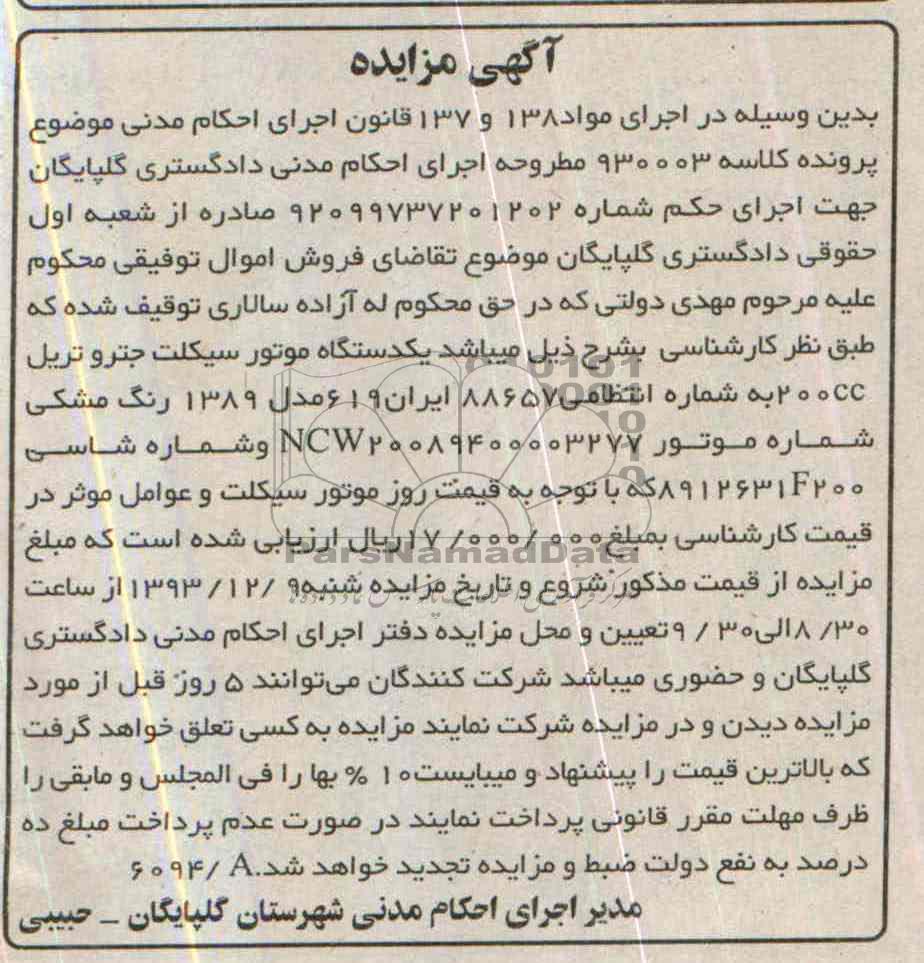 آگهی مزایده
بدین وسیله در اجرای مواد۱۳۸ و ۱۳۷قانون اجرای احکام مدنی موضوع
پرونده کلاسه ۹۳۰۰۰۳ مطروحه اجرای احکام مدنی دادگستری گلپایگان
جهت اجرای حکم شماره ۹۲۰۹۹۷۳۷۲۰۱۲۰۲ صادره از شعبه اول
حقوقی دادگستری گلپایگان موضوع تقاضای فروش اموال توفیقی محکوم
علیه مرحوم مهدی دولتی که در حق محکوم له آزاده سالاری توقیف شده که
طبق نظر کارشناسی بشرح ذیل میباشد یکدستگاه موتور سیکلت جترو تریل
۲۰۰cc به شماره انتظامی۸۸۶۵۷ ایران۶۱۹مدل ۱۳۸۹ رنگ مشکی
شماره موتور NCW۲۰۰۸۹۴۰۰۰۰۳۲۷۷ وشماره شاسی
۸۹۱۲۶۳۱F۲۰۰که با توجه به قیمت روز موتور سیکلت و عوامل موثر در
قیمت کارشناسی بمبلغ۱۷/۰۰۰/۰۰۰ریال ارزیابی شده است که مبلغ
مزایده از قیمت مذکور شروع و تاریخ مزایده شنبه۹ /۱۲/ ۱۳۹۳از ساعت
۸/۳۰الی۹/۳۰تعیین و محل مزایده دفتر اجرای احکام مدنی دادگستری
گلپایگان و حضوری میباشد شرکت کنندگان می‌توانند ۵ روز قبل از مورد
مزایده دیدن و در مزایده شرکت نمایند مزایده به کسی تعلق خواهد گرفت
که بالاترین قیمت را پیشنهاد و میبایست۱۰ % بها را فی المجلس و مابقی را
ظرف مهلت مقرر قانونی پرداخت نمایند در صورت عدم پرداخت مبلغ ده
درصد به نفع دولت ضبط و مزایده تجدید خواهد شد.A /۶۰۹۴
مدیر اجرای احکام مدنی شهرستان گلپایگان _ حبیبی
ParsNamadData